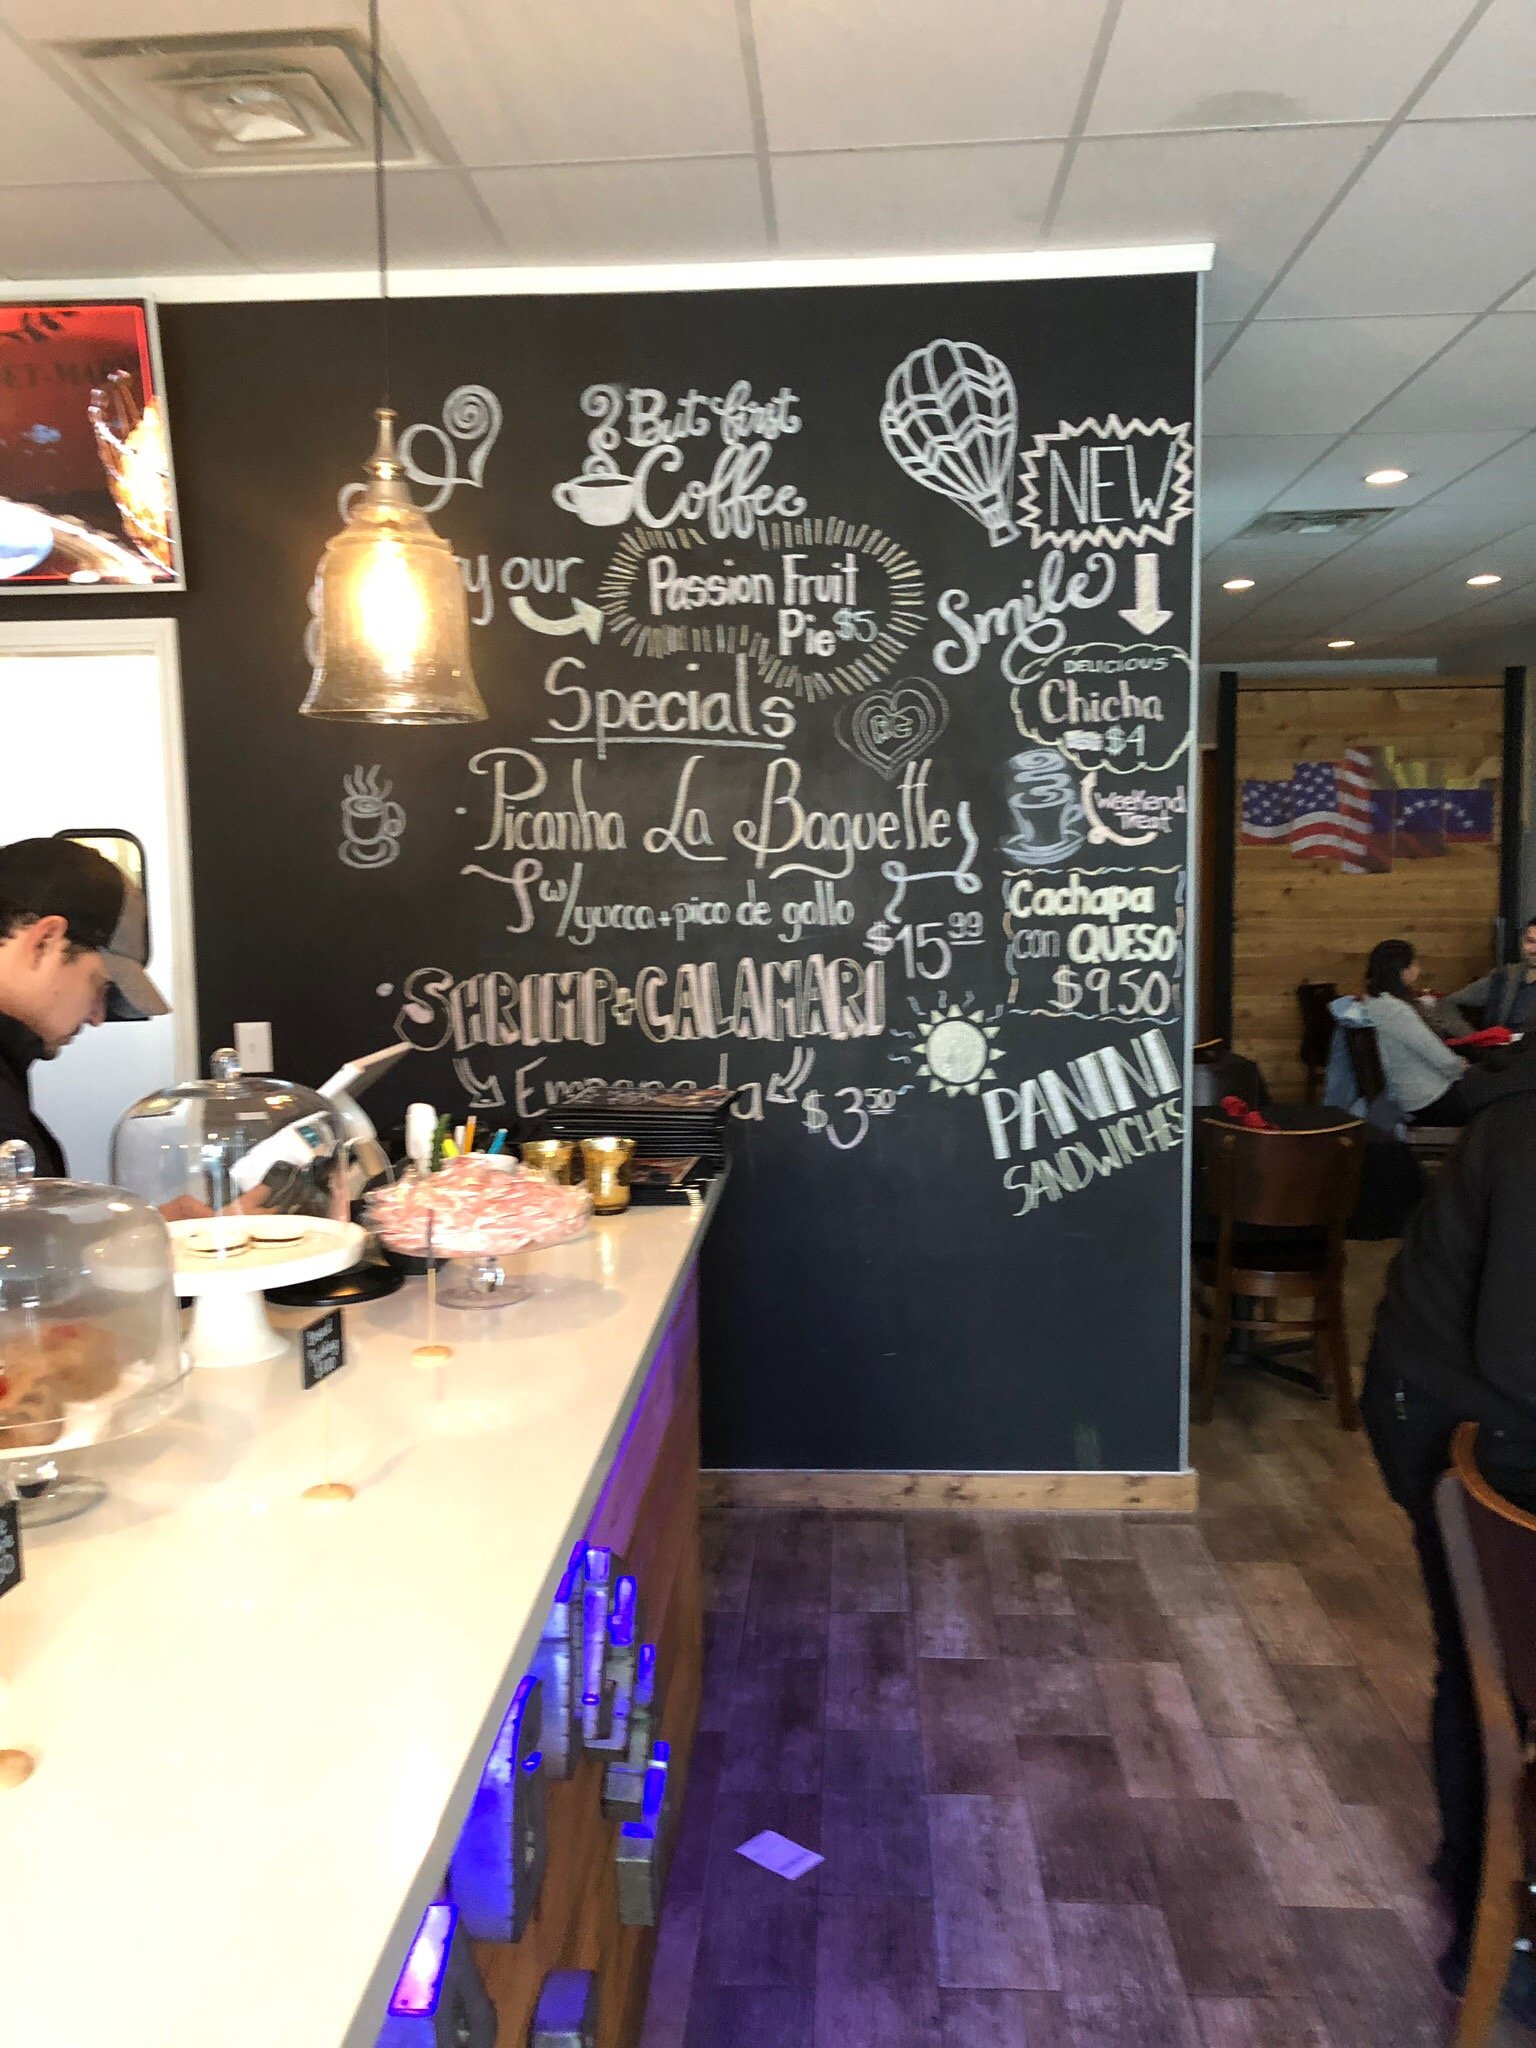 But first
Coffee
our
Passion Fruit
Pie $5
Specials
Picanha La Baguette
w/yucca + pico de gallo
$15.99
SHRIMP + CALAMARI
Empanada
$3.50
NEW
Smile
DELICIOUS
Chicha
$4
Weekend
Treat
Cachapa
con QUESO
$9.50
PANINI
SANDWICHES